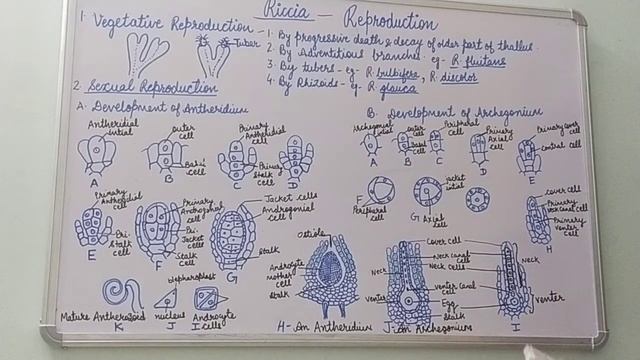 Riccia — Reproduction
1. Vegetative Reproduction - 1. By progressive death & decay of older part of thallus.
2. By Adventitious branches. eg- R. fluitans
3. By tubers - eg- R. bulbifera, R. discolor
4. By Rhizoids - eg- R. glauca
Tuber
2. Sexual Reproduction
A. Development of Antheridium
B. Development of Archegonium
Antheridial initial
A
outer cell
Basal cell
B
Primary Antheridial cell
Primary Stalk cell
C
D
Archegonial initial
A
outer cell
Basal cell
B
Peripheral cell
C
Primary Axial cell
D
Primary cover cell
central cell
E
Primary Antheridial cell
Pri. Stalk cell
E
Primary Androgonial cell
Pri. Jacket cell
Stalk cell
F
Jacket cells
Androgonial cells
Stalk
G
F
Peripheral cell
jacket initial
G Axial cell
cover cell
Primary neck canal cell
Primary venter cell
H
Mature Antherozoid
K
blepharoplast
nucleus
J
Androcyte
I cells
Ostiole
Androcyte mother cell
Stalk
H- An Antheridium
Cover cell
Neck
Neck canal cells
Neck cells
venter canal cell
venter
Egg
Stalk
J- An Archegonium
Neck
venter
I